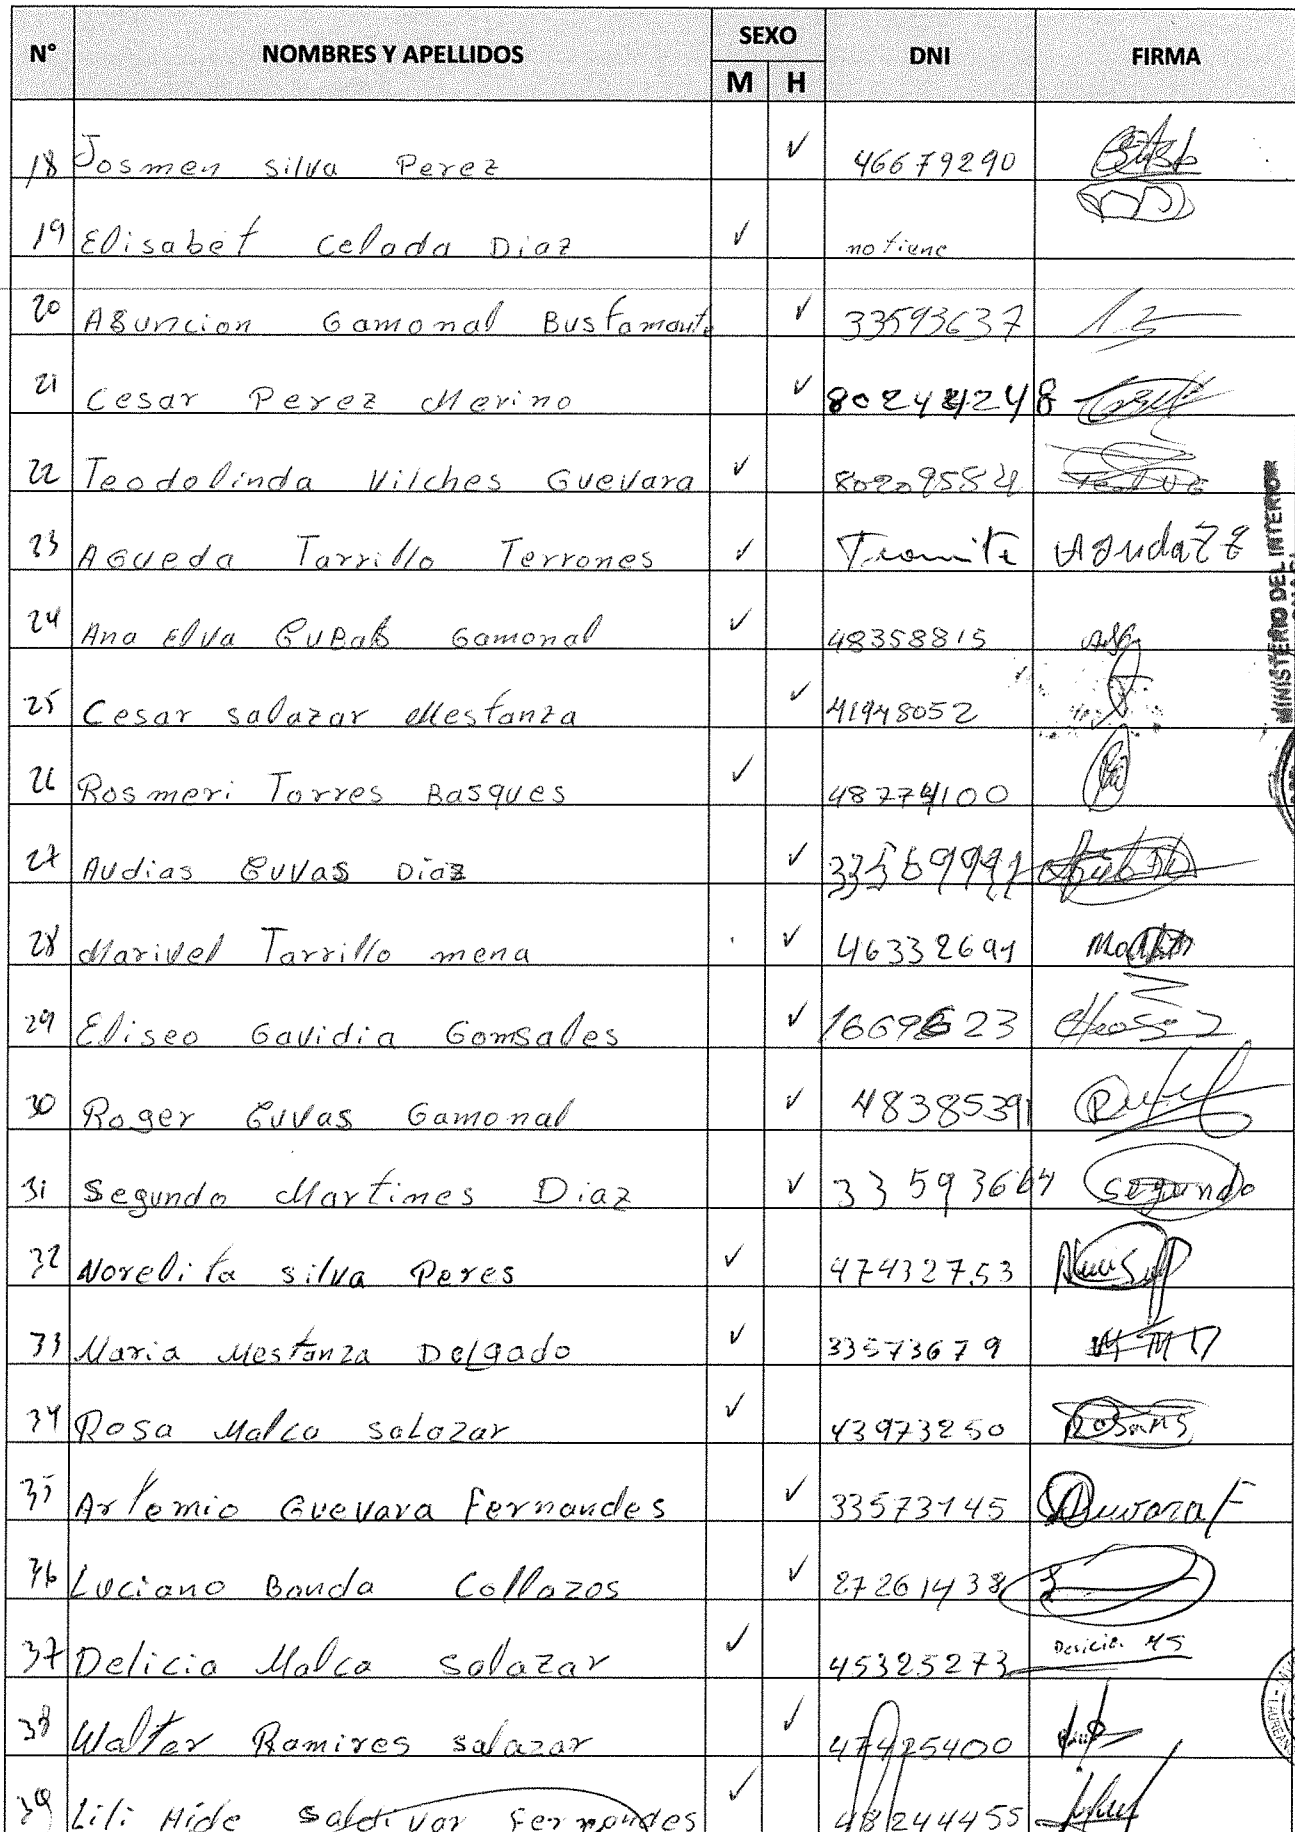 N° NOMBRES Y APELLIDOS SEXO DNI FIRMA
M H
18 Josmen silva Perez ✓ 46679290
19 Elisabet Celada Diaz ✓ no tiene
20 Asuncion Gamonal Bustamante ✓ 33593637
21 Cesar Perez Merino ✓
22 Teodolinda Vilches Guevara ✓
23 AGueda Tarrillo Terrones ✓ Tramite
24 Ana Elva Gamonal ✓ 48358815
25 Cesar salazar Mestanza ✓ 41948052
26 Rosmeri Torres Basques ✓
27 Audias Cuvas Diaz ✓
28 Marivel Tarrillo mena ✓ 46332691
29 Eliseo Gavidia Gomsales ✓
30 Roger Cuvas Gamonal ✓ 48385391
31 Segundo Martines Diaz ✓ 33593664 segundo
32 Norelita silva Peres ✓ 47432753
33 Maria Mestanza Delgado ✓ 33573679 MMD
34 Rosa Malca salazar ✓ 43973250
35 Artemio Guevara Fernandes ✓ 33573145
36 Luciano Banda Collazos ✓ 27261438
37 Delicia Malca Salazar ✓ 45325273 Delicia MS
38 Walter Ramires salazar ✓ 47425400
39 Lili Hide Saldivar Fernandes ✓ 48244455
MINISTERIO DEL INTERIOR